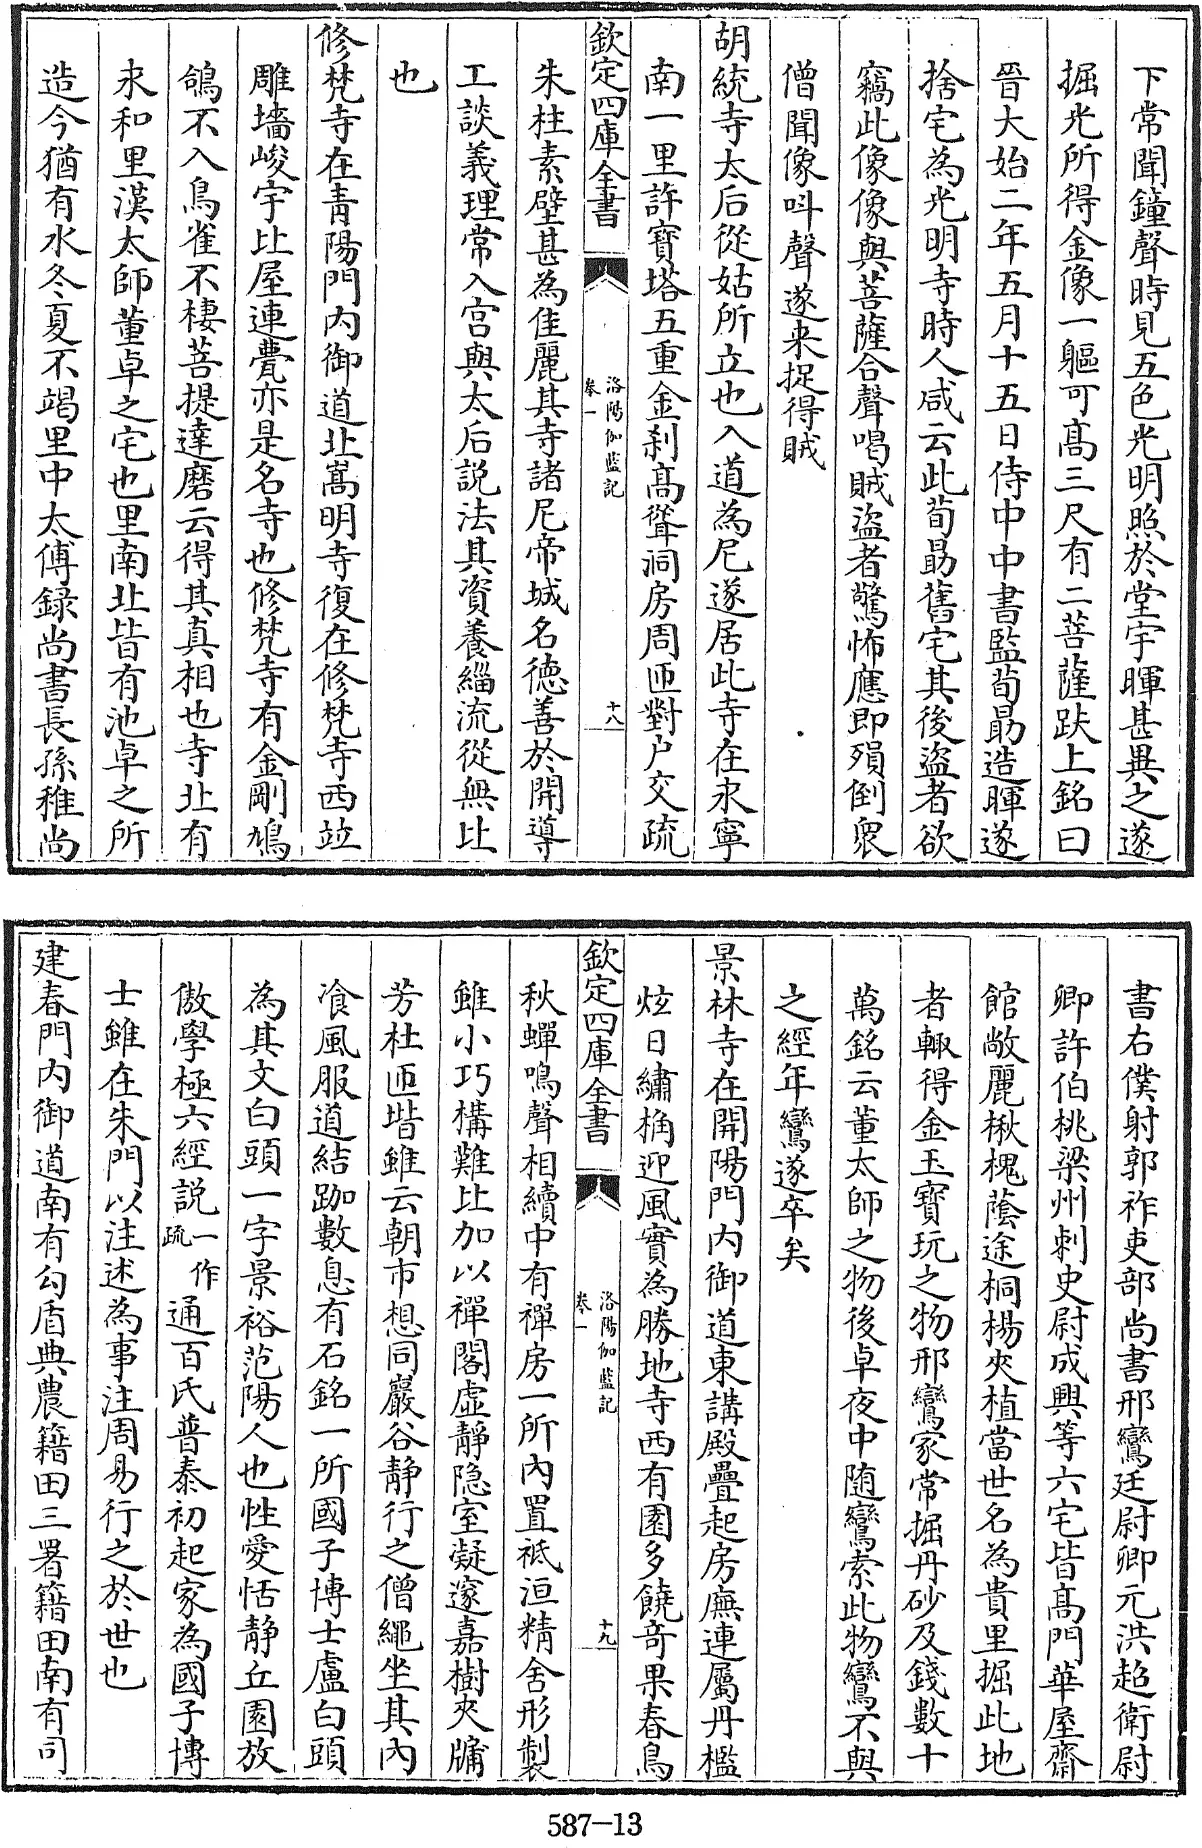 下常聞鐘聲時見五色光明照於堂宇暉甚異之遂
掘光所得金像一軀可髙三尺有二菩薩趺上銘曰
晉大始二年五月十五日侍中中書監荀勗造暉遂
捨宅為光明寺時人咸云此荀勗舊宅其後盜者欲
竊此像像與菩薩合聲喝賊盜者驚怖應即殞倒衆
僧聞像呌聲遂来捉得賊
胡統寺太后從姑所立也入道為尼遂居此寺在永寧
南一里許寳塔五重金刹髙聳洞房周匝對户交疏
欽定四庫全書
洛陽伽藍記
卷一
十八
朱柱素壁甚為佳麗其寺諸尼帝城名德善於開導
工談義理常入宮與太后説法其資養緇流從無比
也
修梵寺在青陽門内御道北嵩明寺復在修梵寺西竝
雕墻峻宇比屋連甍亦是名寺也修梵寺有金剛鳩
鴿不入鳥雀不棲菩提達磨云得其真相也寺北有
永和里漢太師董卓之宅也里南北皆有池卓之所
造今猶有水冬夏不竭里中太傅録尚書長孫稚尚
書右僕射郭祚吏部尚書邢鸞廷尉卿元洪超衛尉
卿許伯桃梁州刺史尉成興等六宅皆髙門華屋齋
館敞麗楸槐蔭途桐楊夾植當世名為貴里掘此地
者輙得金玉寳玩之物邢鸞家常掘丹砂及錢數十
萬銘云董太師之物後卓夜中随鸞索此物鸞不與
之經年鸞遂卒矣
景林寺在開陽門内御道東講殿疊起房廡連屬丹檻
炫日繡桷迎風實為勝地寺西有園多饒奇果春鳥
欽定四庫全書
洛陽伽藍記
卷一
十九
秋蟬鳴聲相續中有禪房一所内置祇洹精舍形製
雖小巧構難比加以禪閣虛靜隠室凝邃嘉樹夾牖
芳杜匝堦雖云朝市想同巖谷靜行之僧繩坐其內
飡風服道結跏數息有石銘一所國子博士盧白頭
為其文白頭一字景裕范陽人也性愛恬靜丘園放
傲學極六經説一作疏通百氏普泰初起家為國子博
士雖在朱門以注述為事注周易行之於世也
建春門内御道南有勾盾典農籍田三署籍田南有司
587-13